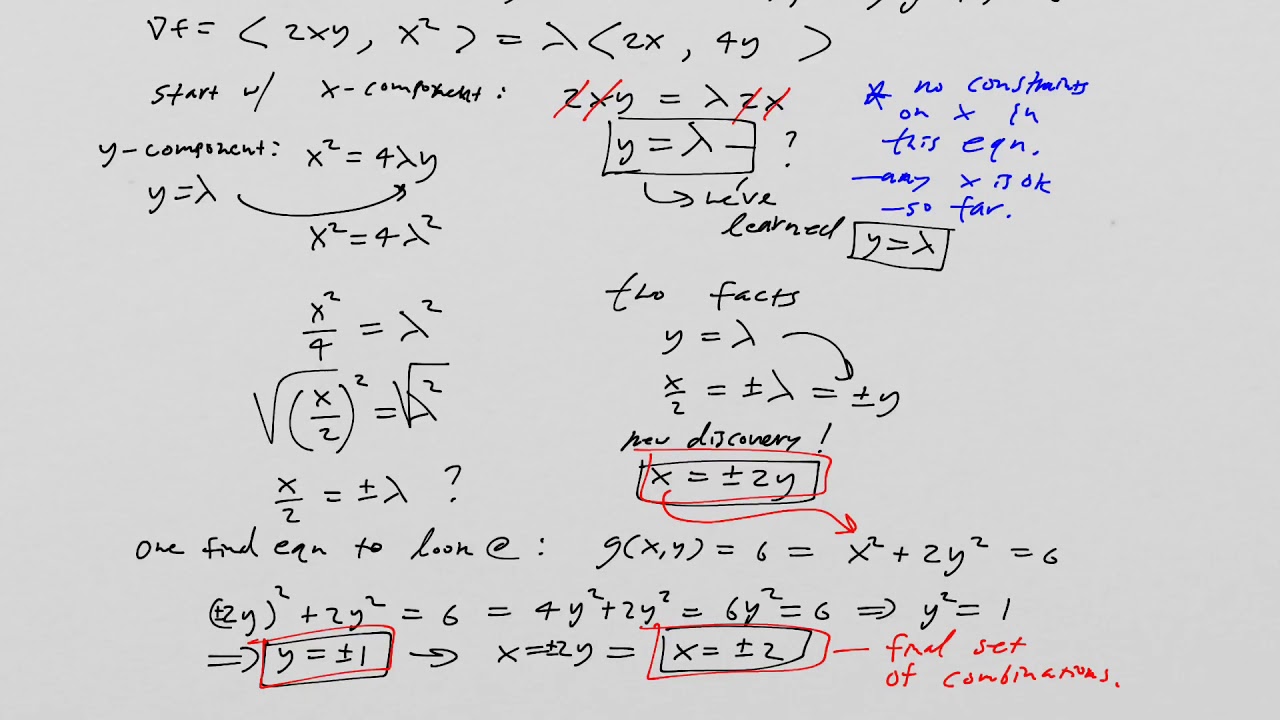 ∇f = < 2xy, x² > = λ < 2x, 4y >
start w/ x-component: 2xy = λ2x
y = λ — ?
↳ we've learned y = λ
* no constraints
on x in
this eqn.
—any x is ok
—so far.
y-component: x² = 4λy
y = λ
x² = 4λ²
x²/4 = λ²
√(x/2)² = √λ²
x/2 = ±λ ?
two facts
y = λ
x/2 = ±λ = ±y
new discovery!
x = ±2y
one find eqn to look @: g(x,y) = 6 = x² + 2y² = 6
(±2y)² + 2y² = 6 = 4y² + 2y² = 6y² = 6 ⇒ y² = 1
⇒ y = ±1 → x = ±2y = x = ±2 — final set
of combinations.